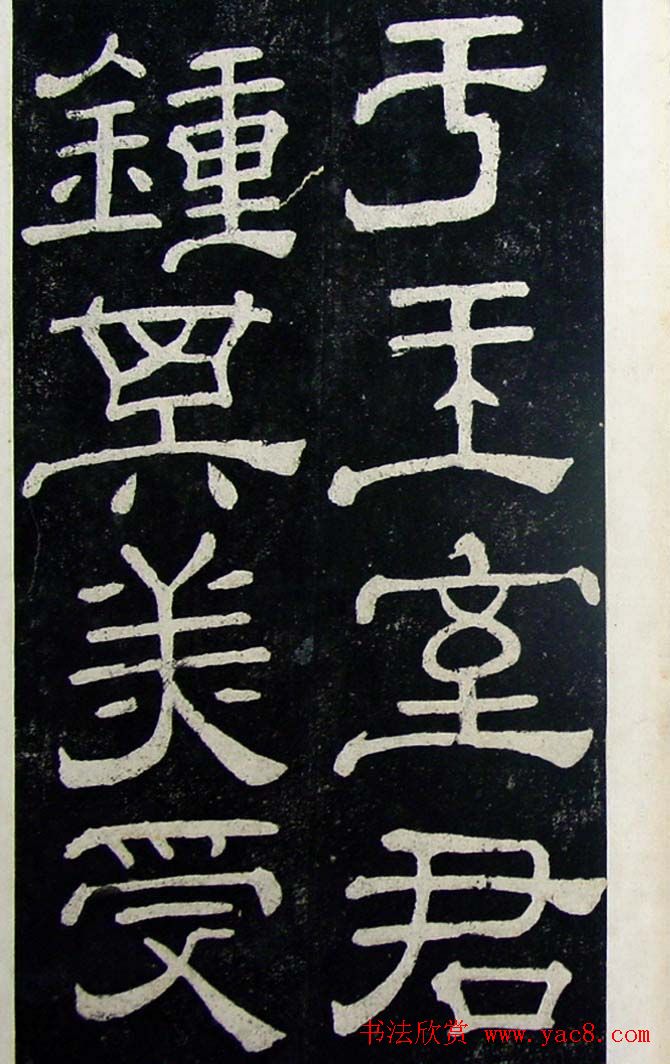 于王室君
鍾其美受
书法欣赏 www.yac8.com